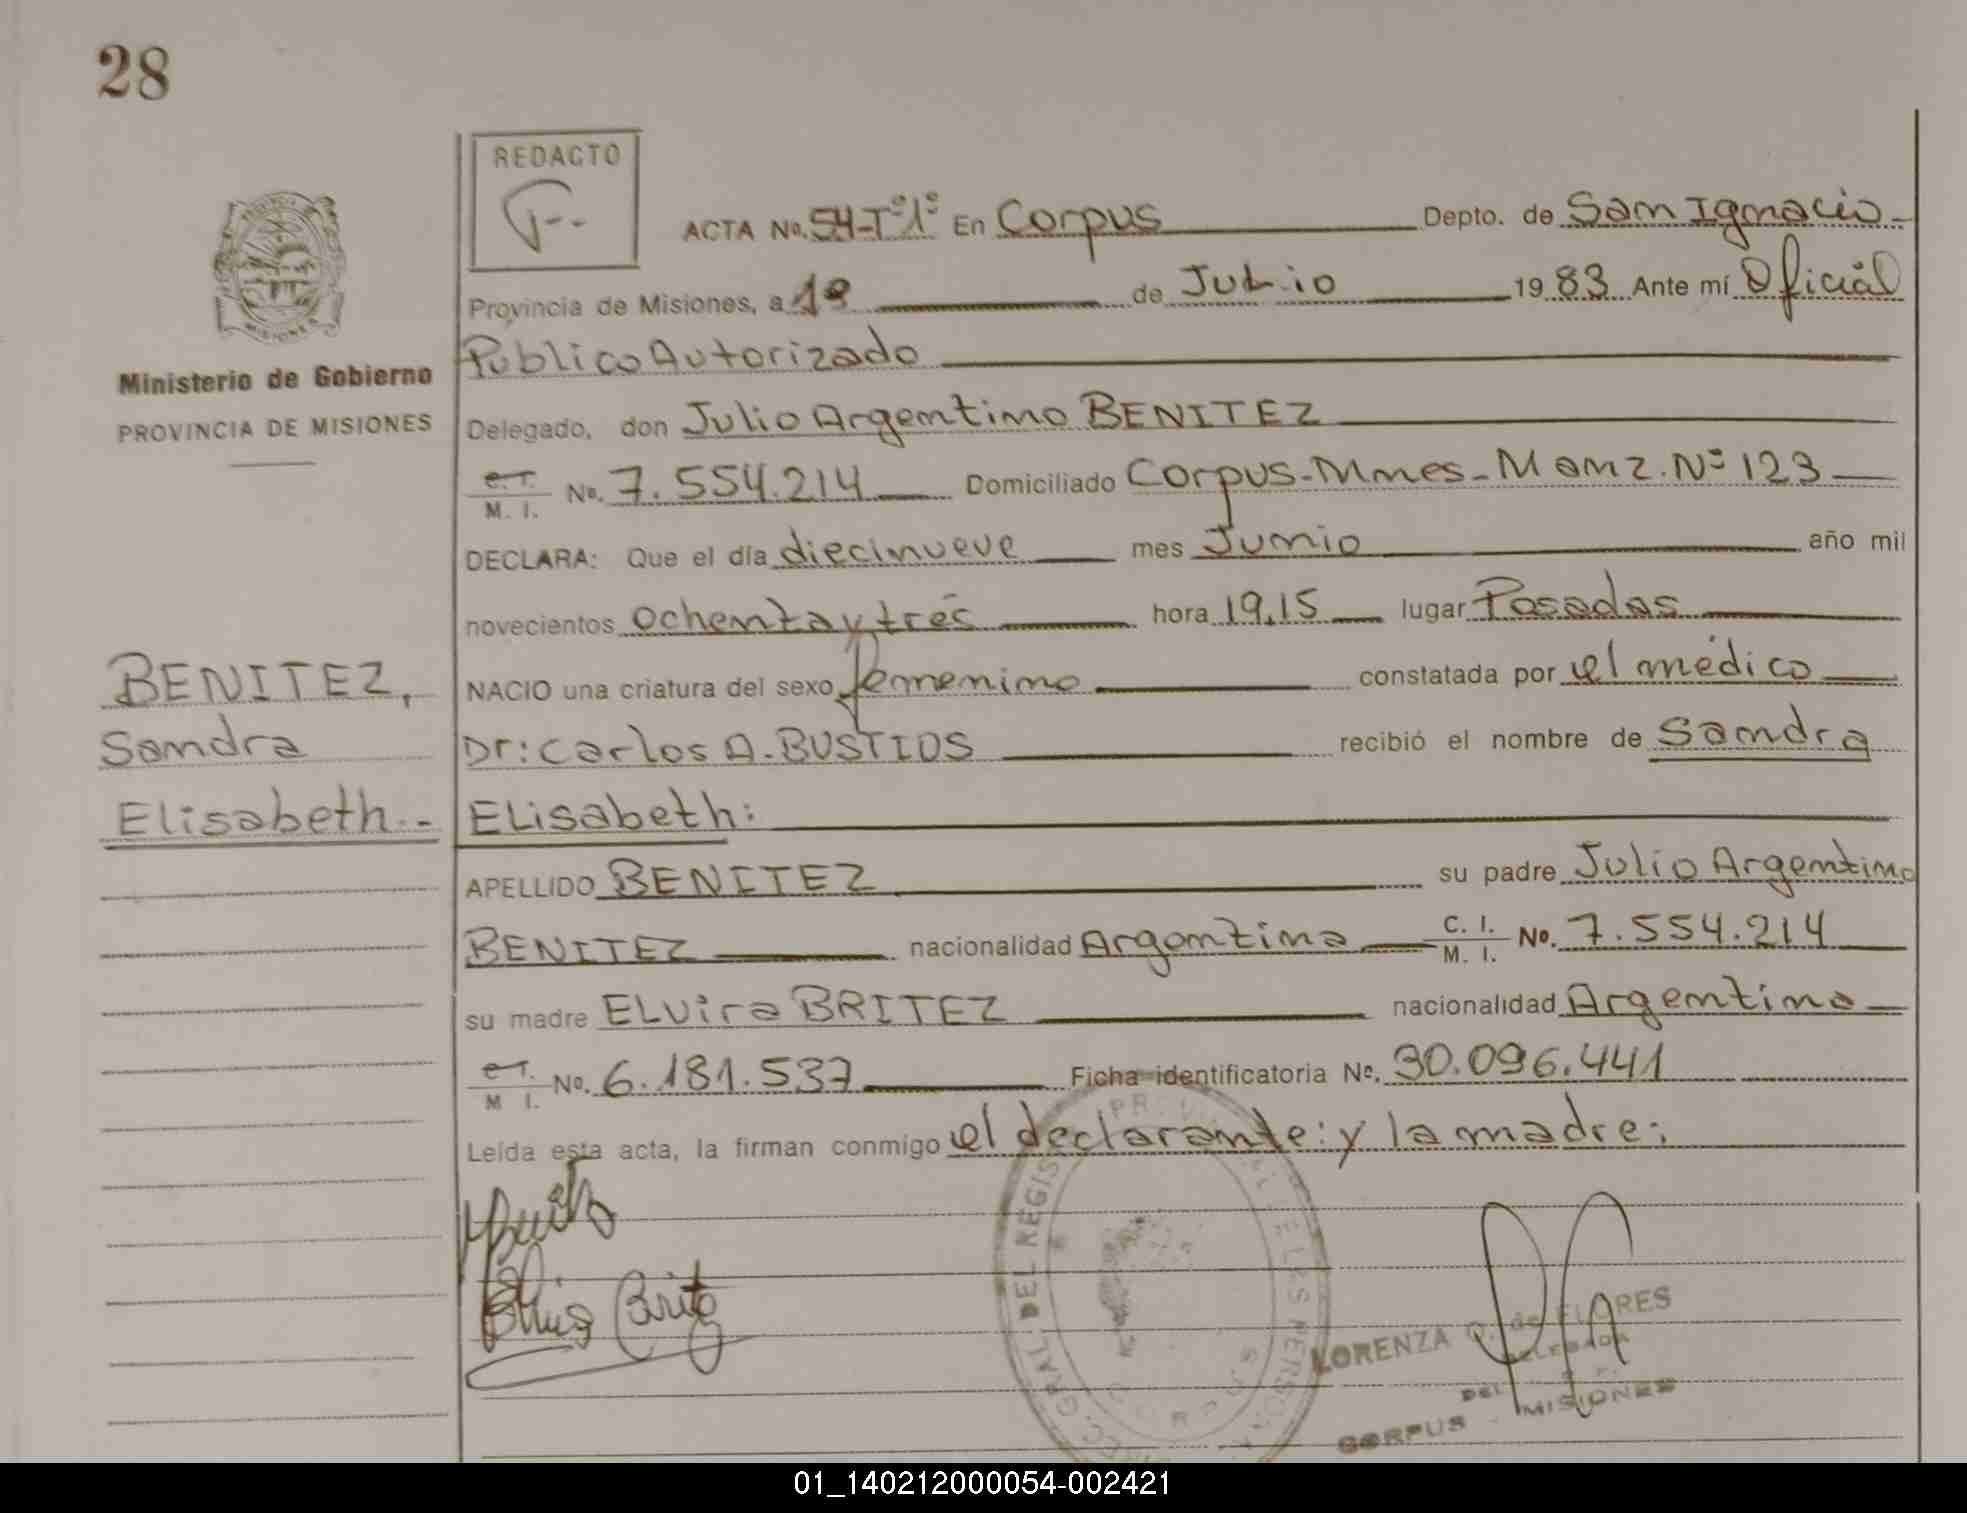 28
REDACTO
ACTA No. 54-Tº1º En Corpus Depto. de San Ignacio-
Provincia de Misiones, a 1º de Julio 1983 Ante mí Oficial
Público Autorizado
Ministerio de Gobierno
PROVINCIA DE MISIONES
Delegado, don Julio Argentino BENITEZ
C.I. M. I. No. 7.554.214 Domiciliado Corpus-Mnes-Manz.Nº 123
DECLARA: Que el día diecinueve mes Junio año mil
novecientos ochenta y tres hora 19,15 lugar Posadas
NACIO una criatura del sexo femenino constatada por el médico
Dr: Carlos A. BUSTIOS recibió el nombre de Sandra
Elisabeth:
BENITEZ,
Sandra
Elisabeth.-
APELLIDO BENITEZ su padre Julio Argentino
BENITEZ nacionalidad Argentina C. I. M. I. No. 7.554.214
su madre Elvira BRITEZ nacionalidad Argentina
C.I. M I. No. 6.181.537 Ficha identificatoria No. 30.096.441
Leída esta acta, la firman conmigo el declarante: y la madre:
DEL REGIS
LORENZA Q. de FLORES
DELEGADA
CORPUS - MISIONES
01_140212000054-002421